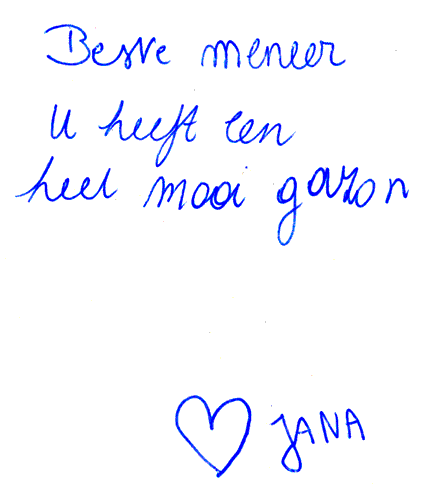 Beste meneer
U heeft een
heel mooi gazon
♡ JANA